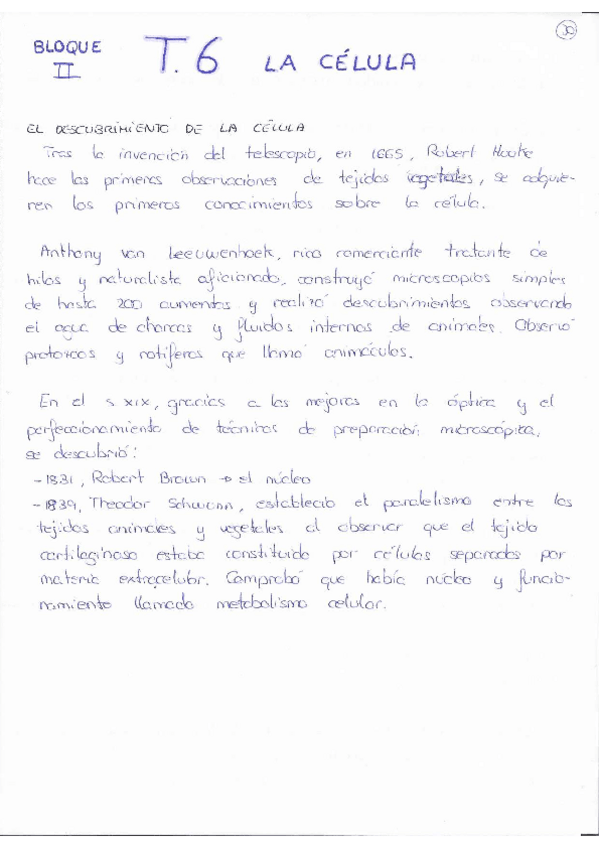 30
BLOQUE II T.6 LA CÉLULA
EL DESCUBRIMIENTO DE LA CÉLULA
Tras la invención del telescopio, en 1665, Robert Hooke
hace las primeras observaciones de tejidos vegetales, se adquie-
ren los primeros conocimientos sobre la célula.
Anthony van Leeuwenhoek, rico comerciante tratante de
hilos y naturalista aficionado, construyó microscopios simples
de hasta 200 aumentos y realizó descubrimientos observando
el agua de charcas y fluidos internos de animales. Observó
protozoos y rotíferos que llamó animáculos.
En el s XIX, gracias a las mejoras en la óptica y el
perfeccionamiento de técnicas de preparación microscópica,
se descubrió:
- 1831, Robert Brown → el núcleo
- 1839, Theodor Schwann, estableció el paralelismo entre los
tejidos animales y vegetales al observar que el tejido
cartilaginoso estaba constituido por células separadas por
materia extracelular. Comprobó que había núcleo y funcio-
namiento llamado metabolismo celular.